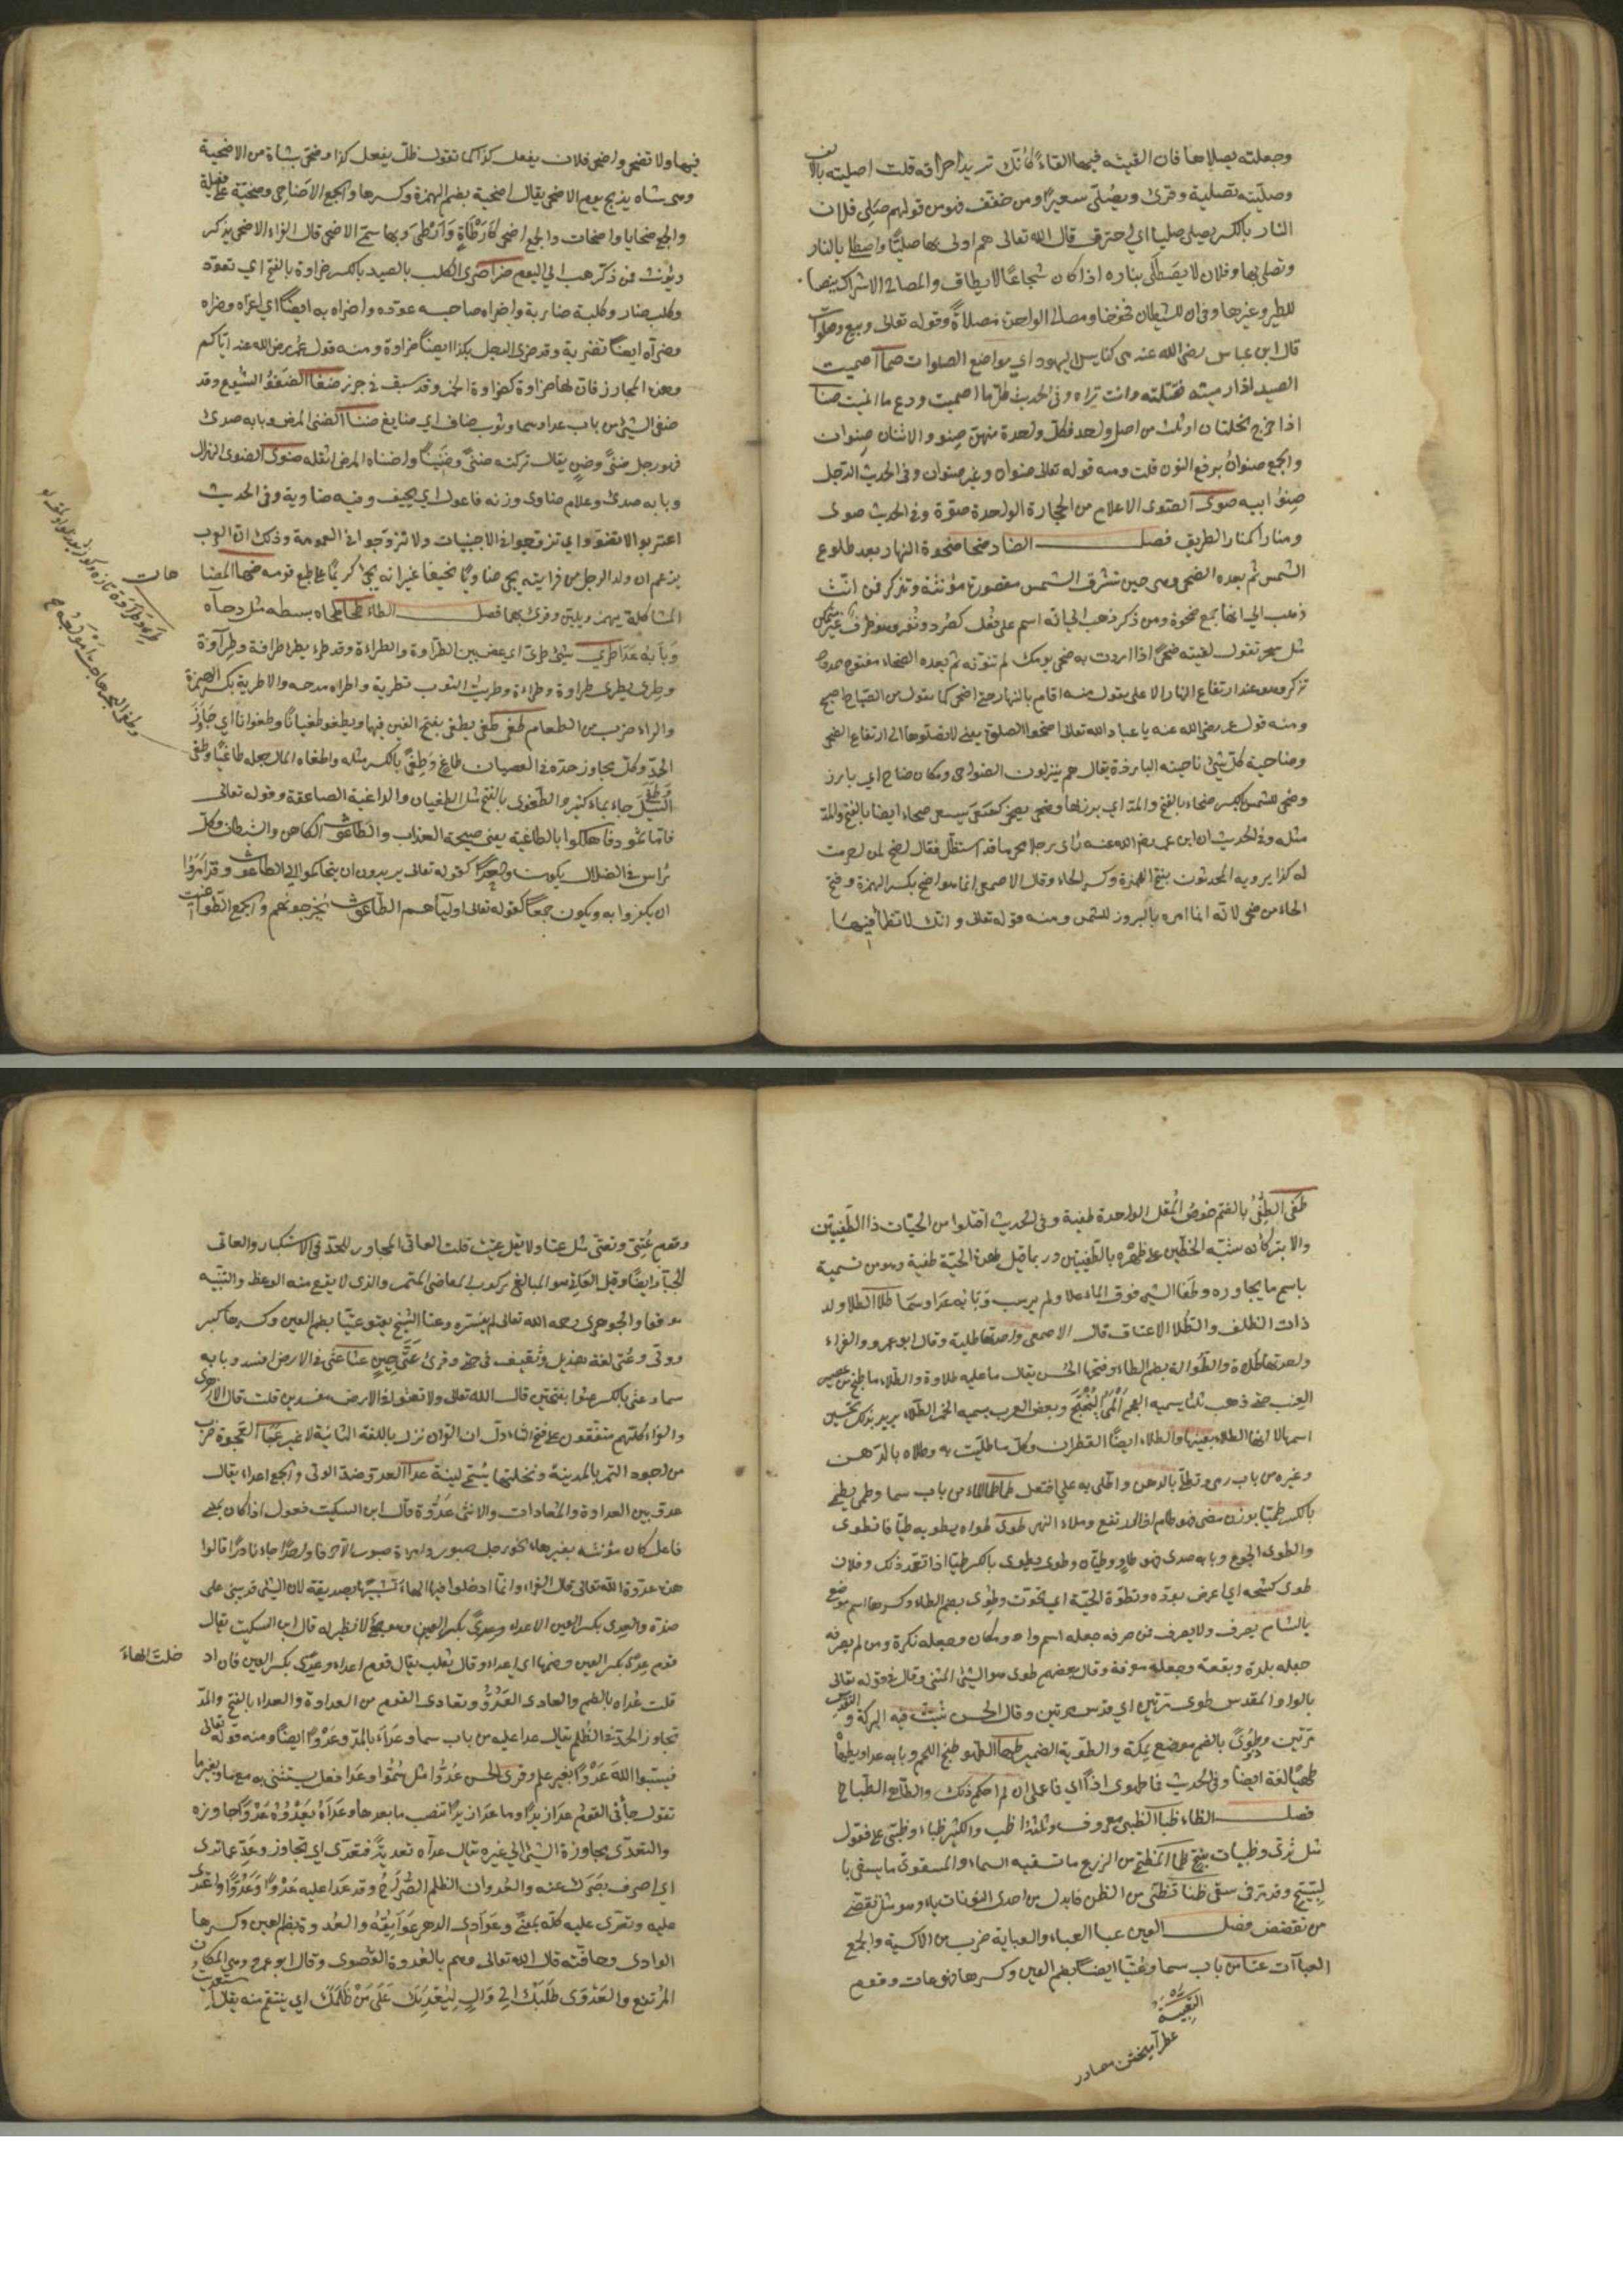 وجعلته يصلاها فان القيته فيها القاء كأنك تريد احراقه قلت اصليته بالالف
وصليته تصلية وقرئ ويصلى سعيرا ومن خفف فهو من قولهم صلى فلان
النار بالكسر يصلى صليا اي احترق قال الله تعالى هم اولى بها صليا واصطلى بالنار
وتصلى بها وفلان لا يصطلى بناره اذا كان شجاعا لا يطاق والمصالي الاشراك ينصبها
للطير وغيرها وفي ان للشيطان فخوخا ومصالي الواحدة مصلاة وقوله تعالى وبيع وصلوات
قال ابن عباس رضى الله عنه هى كنايس اليهود اي مواضع الصلوات صما اصميت
الصيد اذا رميته فقتلته وانت تراه وفى الحديث كل ما اصميت ودع ما انميت صنا
اذا خرج نخلتان او ثلث من اصل واحد فكل واحدة منهن صنو والاثنان صنوان
والجمع صنوان برفع النون قلت ومنه قوله تعالى صنوان وغير صنوان وفى الحديث عم الرجل
صنو ابيه صوى الصوى الاعلام من الحجارة الواحدة صوة وفى الحديث صوى
ومنارا كمنار الطريق فصل الضاد ضحا ضحوة النهار بعد طلوع
الشمس ثم بعده الضحى وهى حين تشرق الشمس مقصورة مؤنثة وتذكر فمن انث
ذهب الى انها جمع ضحوة ومن ذكر ذهب الى انه اسم على فعل كصرد ونغر وهو ظرف غير متمكن
مثل سحر تقول لقيته ضحى اذا اردت به ضحى يومك لم تنونه ثم بعده الضحاء مفتوح ممدود
تذكر وهو عند ارتفاع النهار الاعلى يقول منه اقام بالنهار حتى اضحى كما تقول من الصباح اصبح
ومنه قول عمر رضى الله عنه يا عباد الله تعالى اضحوا الصلوة يعنى لا تصلوها الى ارتفاع الضحى
وضاحية كل شئ ناحيته البارزة يقال هم ينزلون الضواحى ومكان ضاح اي بارز
وضحى للشمس بالكسر ضحاء بالفتح والمد اي برز لها وضحى يضحى كسعى يسعى ضحاء ايضا بالفتح والمد
مثله وفى الحديث ان ابن عمر رضى الله عنه رأى رجلا محرما قد استظل فقال اضح لمن احرمت
له كذا يرويه المحدثون بفتح الهمزة وكسر الحاء وقال الاصمعى انما هو اضح بكسر الهمزة وفتح
الحاء من ضحى لانه انما امره بالبروز للشمس ومنه قوله تعالى وانك لا تظمأ فيها
فيها ولا تضحى واضحى فلان يفعل كذا كما تقول ظل يفعل كذا وضحى بشاة من الاضحية
وهى شاه يذبح يوم الاضحى يقال اضحية بضم الهمزة وكسرها والجمع الاضاحى وضحية على فعيلة
والجمع ضحايا واضحات والجمع اضحى كارطاة وارطى وبها سمى الاضحى قال الفراء الاضحى يذكر
ويؤنث فمن ذكر ذهب الى اليوم ضرا ضرى الكلب بالصيد بالكسر ضراوة بالفتح اي تعود
وكلب ضار وكلبة ضارية واضراه صاحبه عوده واضراه به ايضا اي اغراه وضراه
وضرّاه ايضا تضرية وقد ضرى الرجل بكذا ايضا ضراوة ومنه قول عمر رضى الله عنه اياكم
وهذه المجازر فان لها ضراوة كضراوة الخمر وقد سبق فى جزر ضفا الضفو السبوغ وقد
ضفى الشئ من باب عدا وسما وثوب ضاف اي سابغ ضنا الضنى المرض وبابه صدى
فهو رجل ضنى وضن يقال تركته ضنى وضنيا واضناه المرض اثقله ضوى الضوى الهزال
وبابه صدى وغلام ضاوى وزنه فاعول اي نحيف وفيه ضاوية وفى الحديث
اغتربوا لا تضووا اي تزوجوا فى الاجنبيات ولا تزوجوا فى العمومة وذلك ان العرب
يزعم ان ولد الرجل من قرابته يجئ ضاويا نحيفا غير انه يجئ كريما على طبع قومه ضها المضا
هات
المشاكلة يهمز ويلين وقرئ بهما فصل الطاء طحا طحاه بسطه مثل دحاه
وبابه عدا طرى شئ طرى اي غض بين الطراوة والطراءة وقد طرو يطرو طراوة وطراءة
وطرى يطرى طراوة وطراءة وطريت الثوب تطرية واطراه مدحه والاطرية بكسر الهمزة
والراء ضرب من الطعام طغى طغى يطغى بفتح الغين فيهما ويطغو طغيانا وطغوانا اي جاوز
الحد وكل مجاوز حده فى العصيان طاغ وطغى بالكسر مثله واطغاه المال جعله طاغيا وطغى
السيل جاء بماء كثير والطغوى بالفتح مثل الطغيان والطاغية الصاعقة وقوله تعالى
فاما ثمود فاهلكوا بالطاغية يعنى صيحة العذاب والطاغوت الكاهن والشيطان وكل
رأس فى الضلال يكون واحدا كقوله تعالى يريدون ان يتحاكموا الى الطاغوت وقد امروا
ان يكفروا به ويكون جمعا كقوله تعالى اولياؤهم الطاغوت يخرجونهم والجمع الطواغيت
طفى الطفى بالضم خوص المقل الواحدة طفية وفى الحديث اقتلوا من الحيات ذا الطفيتين
والابتر كأنه شبه الخطين على ظهره بالطفيتين وربما قيل لهذه الحية طفية وهو من تسمية
باسم ما يجاوره وطفا الشئ فوق الماء علا ولم يرسب وبابه عدا وسما طلا الطلا ولد
ذات الظلف والطلا الاعناق قال الاصمعى واحدتها طلية وقال ابو عمرو والفراء
واحدتها طلاة والطلاوة بضم الطاء وفتحها الحسن يقال ما عليه طلاوة والطلاء ما طبخ من عصير
العنب حتى ذهب ثلثاه يسميه العجم الميبختج وبعض العرب يسميه الخمر الطلاء يريد بذلك تحسين
اسمها لا انها الطلاء بعينها والطلاء ايضا القطران وكل ما طليت به وطلاه بالدهن
وغيره من باب رمى وتطلى بالدهن واطلى به على افتعل طما طما الماء من باب سما وطمى يطمى
بالكسر طميا بوزن مضى فهو طام اذا ارتفع وملاء النهر طوى طواه يطويه طيا فانطوى
والطوى الجوع وبابه صدى فهو طاو وطيان وطوى يطوى بالكسر طيا اذا تعمد ذلك وفلان
طوى كشحه اي اعرض بوده وتطوت الحية اي تحوت وطوى بضم الطاء وكسرها اسم موضع
بالشام يصرف ولا يصرف فمن صرفه جعله اسم واد ومكان وجعله نكرة ومن لم يصرفه
جعله بلدة وبقعة وجعله معرفة وقال بعضهم طوى هو الشئ المثنى وقال فى قوله تعالى
بالواد المقدس طوى مرتين اي قدس مرتين وقال الحسن ثنيت فيه البركة والتقديس
مرتين وطوى بالضم موضع بمكة والطوية الضمير طها الطهو طبخ اللحم وبابه عدا ويطهاه
طهيا لغة ايضا وفى الحديث فما طهوى اذا اي فما عملى ان لم احكم ذلك والطاهى الطباخ
فصل الظاء ظبا الظبى معروف وثلثة اظب والكثير ظباء وظبى على فعول
مثل ثدى وظبيات بفتح ظما المظمئ من الزرع ما تسقيه السماء والمسقوى ما يسقى با
لسيح وقد مر فى سقى ظنا تظنى من الظن فابدل من احدى النونات ياء وهو مثل تقضى
من تقضض فصل العين عبا العباء والعباية ضرب من الاكسية والجمع
العباآت عتا من باب سما وعتيا ايضا بضم العين وكسرها فهو عات وقوم
عطر آميختن مصادر
وقوم عتى وتعتى مثل عتا ولا تقل عتيت قلت العاتى المجاوز للحد فى الاستكبار والعاتى
الجبار ايضا وقيل العاتى هو المبالغ فى ركوب المعاصى المتمرد والذى لا يقع منه الوعظ والتنبيه
موقعا والجوهرى رحمه الله تعالى لم يفسره وعتا الشيخ يعتو عتيا بضم العين وكسرها كبر
وولى وعتى لغة هذيل وثقيف فى حتى وقرئ عتى حين عثا عثى فى الارض افسد وبابه
سما وعثى بالكسر عثوا بفتحتين قال الله تعالى ولا تعثوا فى الارض مفسدين قلت قال الازهرى
والقراء كلهم متفقون على فتح الثاء دل ان القران نزل باللغة الثانية لا غير عجا العجوة ضرب
من اجود التمر بالمدينة ونخلتها يسمى لينة عدا العدو ضد الولى والجمع اعداء يقال
عدو بين العداوة والمعادات والانثى عدوة قال ابن السكيت فعول اذا كان بمعنى
فاعل كان مؤنثه بغير هاء نحو رجل صبور وامراة صبور الا حرفا واحدا جاء نادرا قالوا
هذه عدوة الله تعالى قال الفراء وانما ادخلوا فيها الهاء تشبيها بصديقة لان الشئ قد يبنى على
ضده والعدى بكسر العين الاعداء وهو جمع لا نظير له قال ابن السكيت يقال
قوم عدى بكسر العين وضمها اي اعداء وقال ثعلب يقال قوم اعداء وعدى بكسر العين فان اد
خلت الهاء
قلت عداه بالضم والعادى العدو وتعادى القوم من العداوة والعداء بالفتح والمد
تجاوز الحد فى الظلم يقال عدا عليه من باب سما وعداء بالمد وعدوا ايضا ومنه قوله تعالى
فيسبوا الله عدوا بغير علم وقرئ الحسن عدوا مثل سموا وعدا فعل يستثنى به مع ما وبغير ما
تقول جاءنى القوم عدا زيدا وما عدا زيدا تنصب ما بعدها وعداه يعدوه عدوا جاوزه
والتعدى مجاوزة الشئ الى غيره يقال عداه تعدية فتعدى اي تجاوز وعد عما ترى
اي اصرف بصرك عنه والعدوان الظلم الصراح وقد عدا عليه عدوا وعدوا واعتدى
عليه وتعدى عليه كله بمعنى وعوادى الدهر عوايقه والعدوة بضم العين وكسرها
الوادى وحافته قال الله تعالى وهم بالعدوة القصوى وقال ابو عمرو هى المكان
المرتفع والعدوى طلبك الى وال ليعديك على من ظلمك اي ينتقم منه يقال